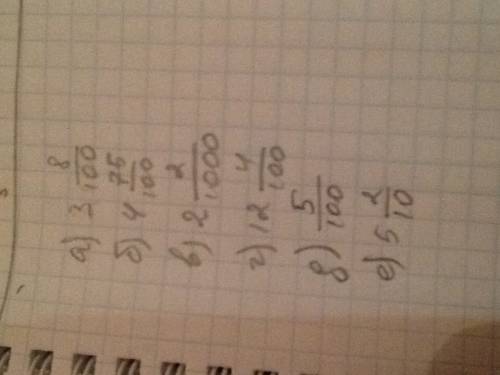 а) 3 8/100
б) 4 75/100
в) 2 2/1000
г) 12 4/100
д) 5/100
е) 5 2/10